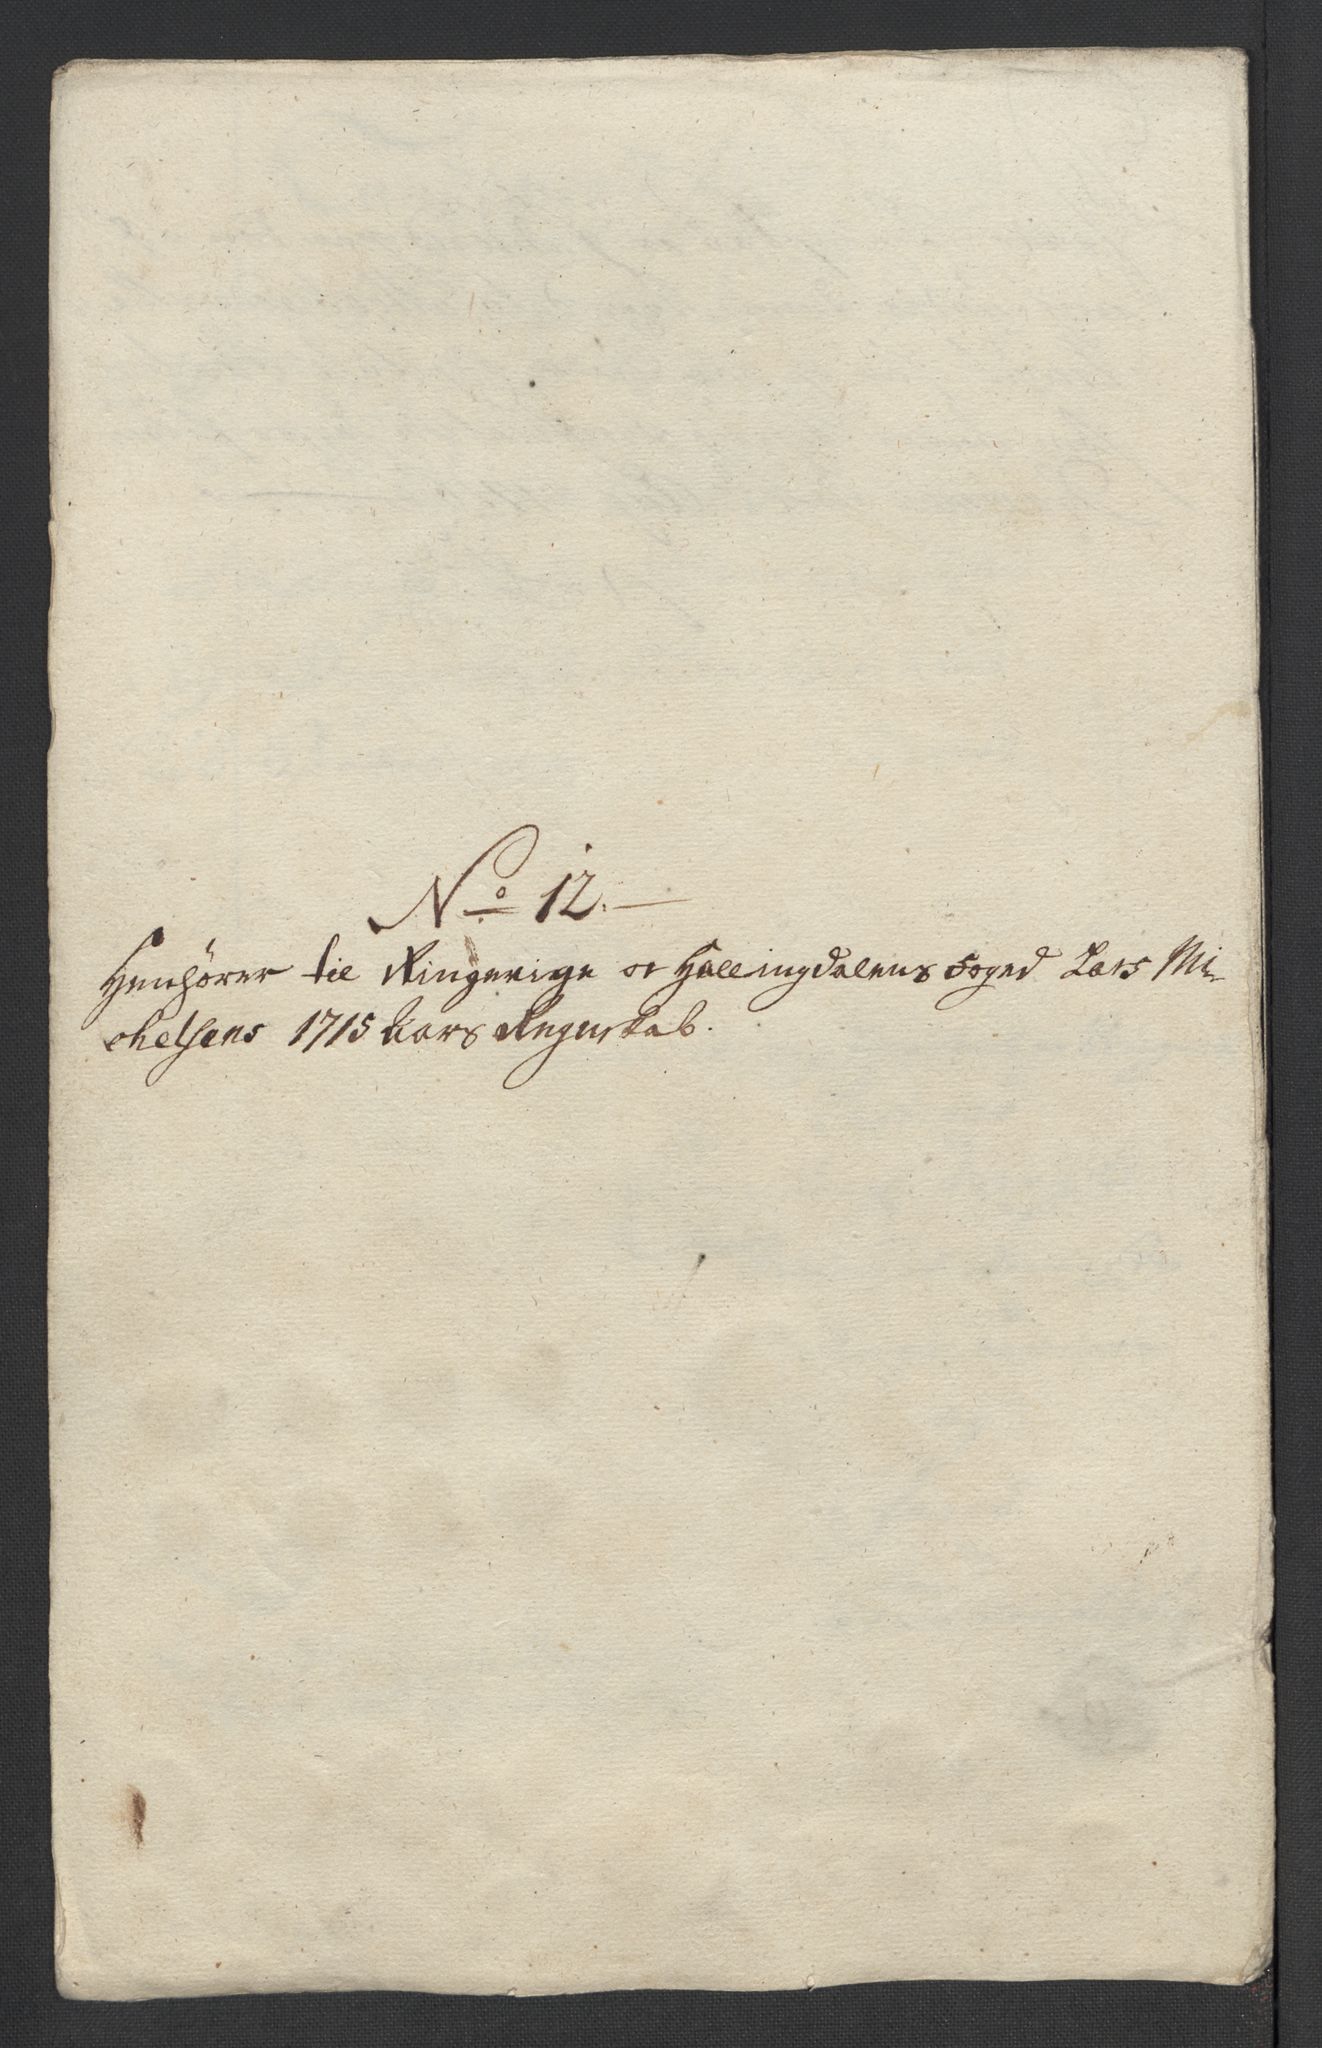 No 12.
Henhörer til Ringerige og Hallingdalens Foged Lars Mi-
chelsens 1715 Aars Regnskab.